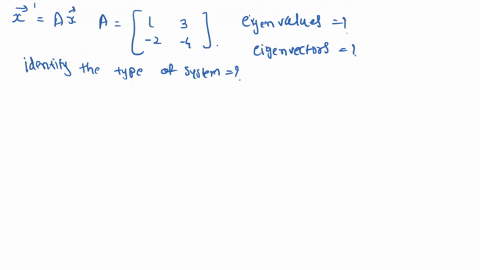 x⃗' = Ax⃗ A = [1 3; -2 -4]. eigenvalues = ?
eigenvectors = ?
identify the type of system = ?